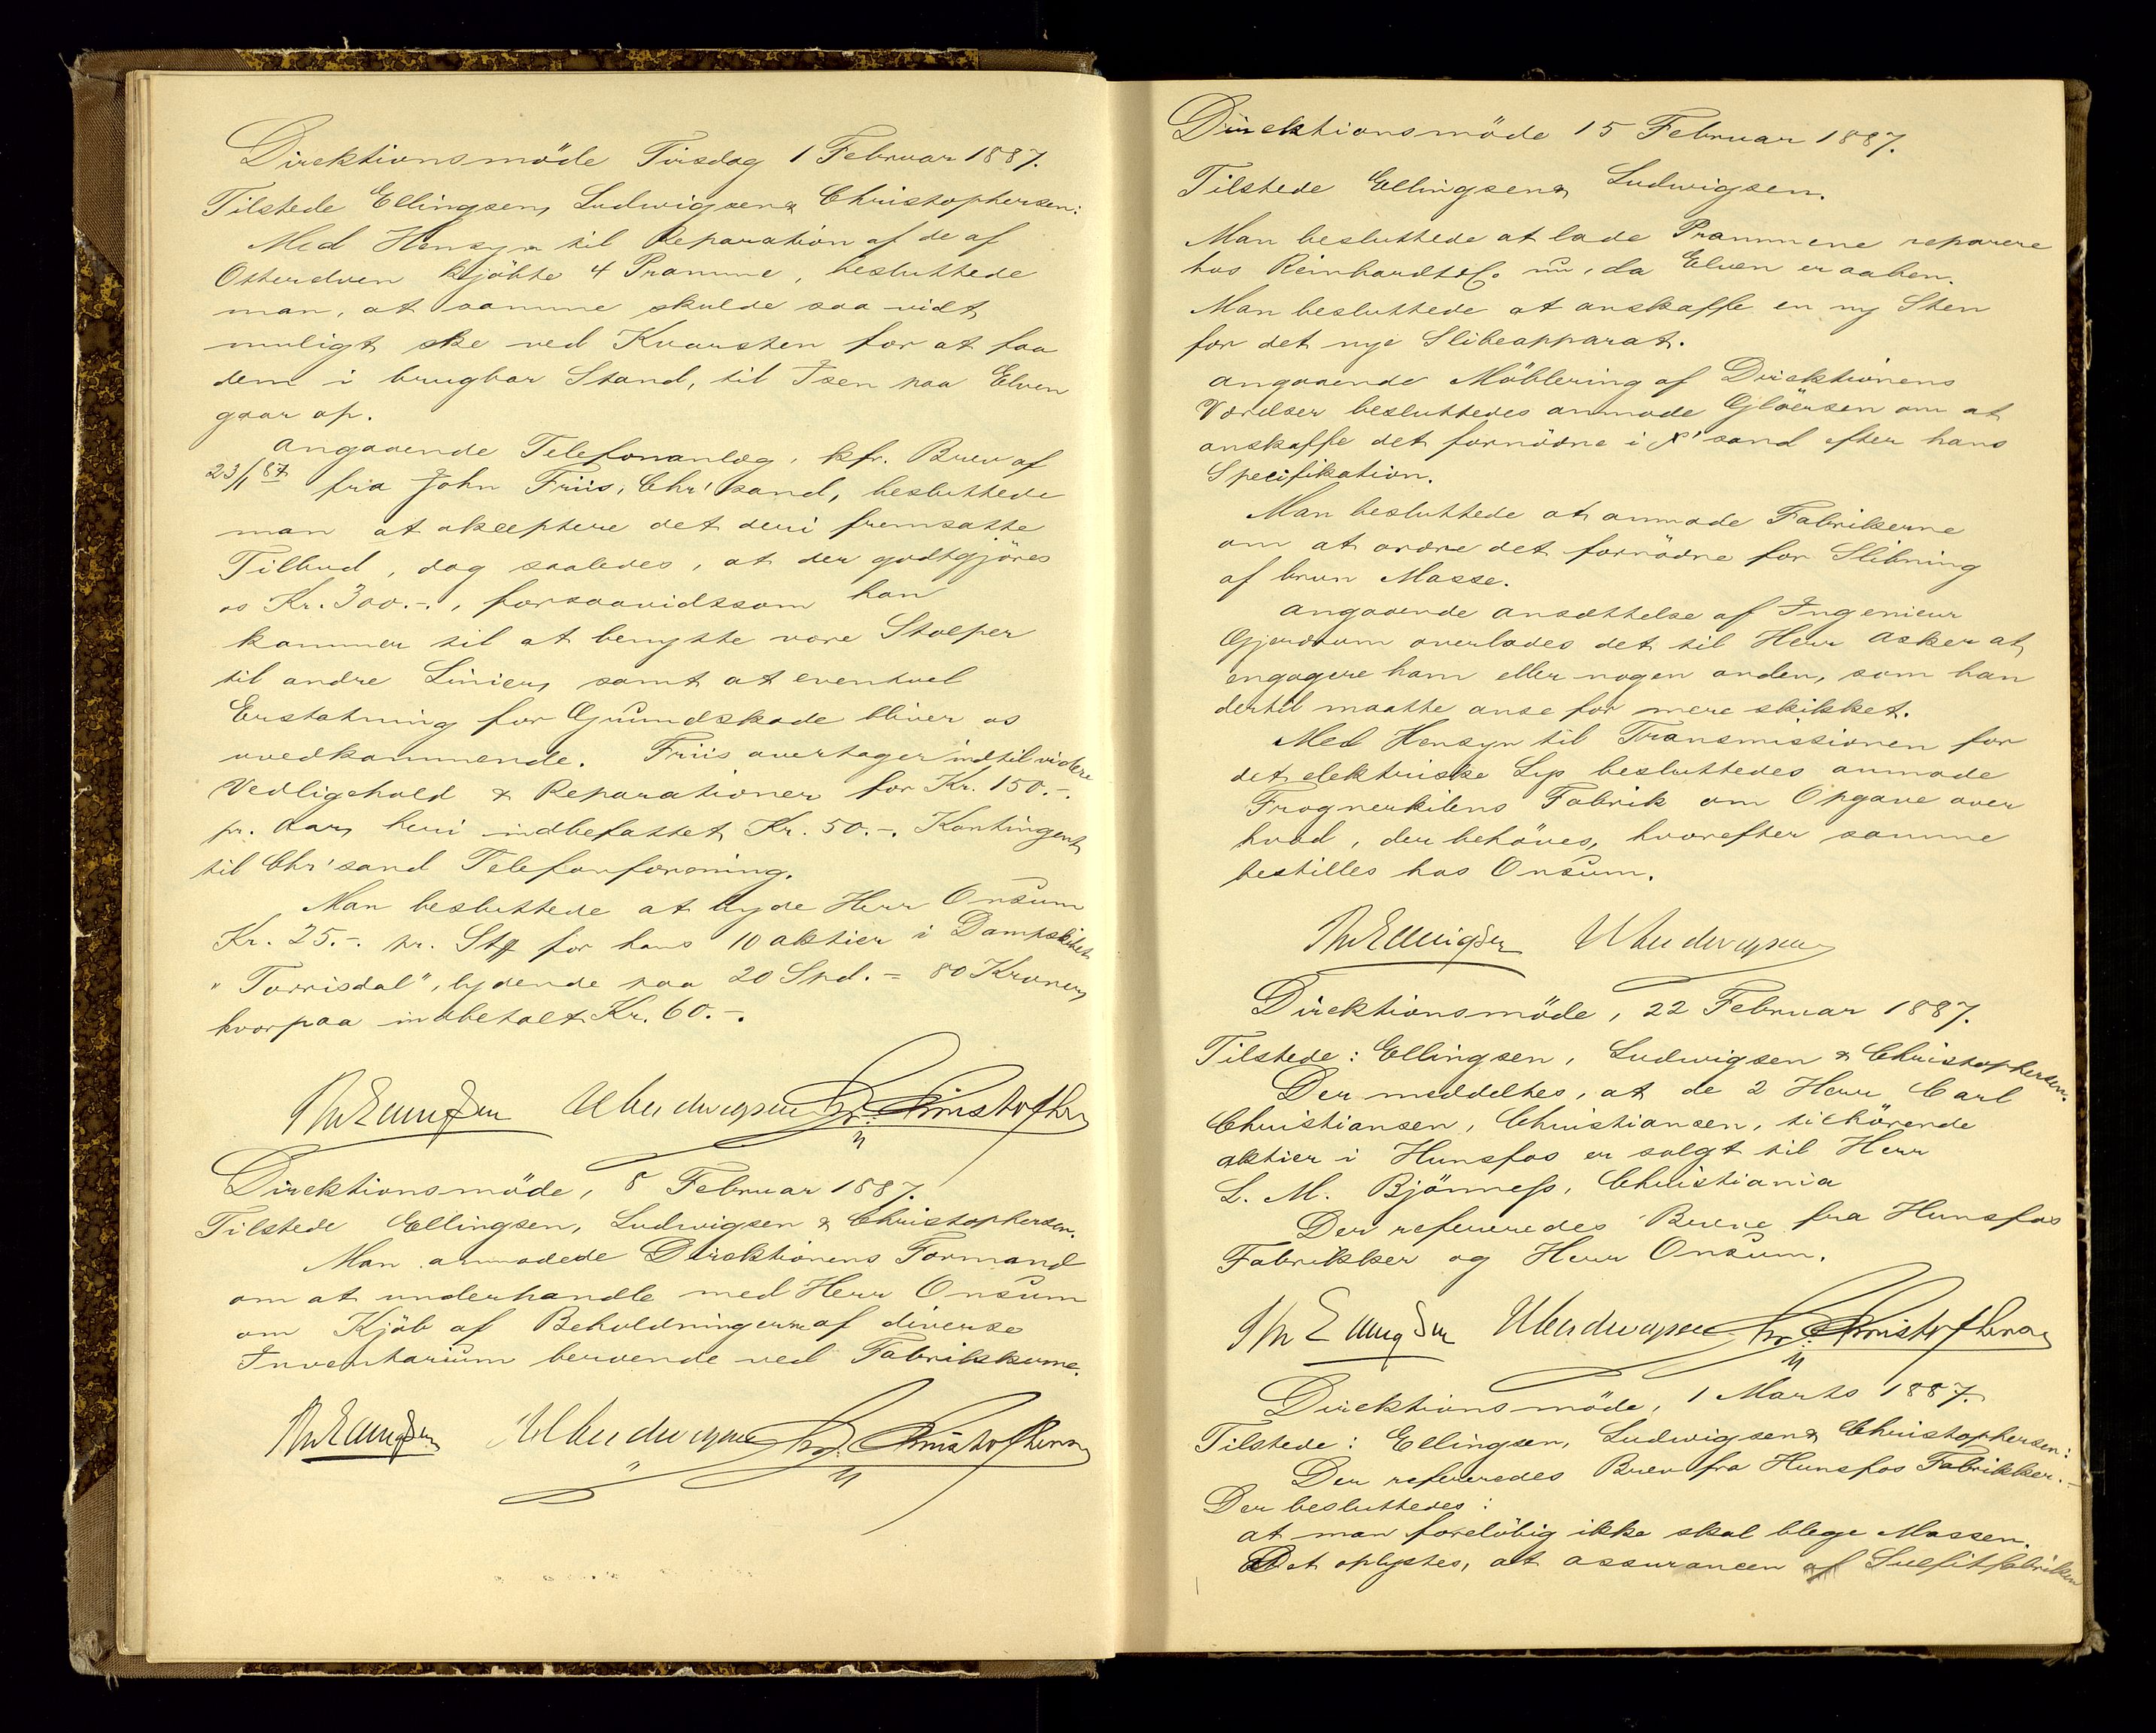 Direktionsmöde Tirsdag 1 Februar 1887.
Tilstede Ellingsen, Ludwigsen & Christophersen:
Med Hensyn til Reparation af de af
Otterelven kjöbte 4 Pramme, besluttede
man, at samme skulde saa vidt
muligt ske ved Kvarsten for at faa
dem i brugbar Stand, til Isen paa Elven
gaar op.
Angaaende Telefonanlæg, kfr. Brev af
23/1 87 fra John Friis, Chr'sand, besluttede
man at akceptere det deri fremsatte
Tilbud, dog saaledes, at der godtgjöres
os Kr. 300.-, forsaavidtsom han
kommer til at benytte vore Stolper
til andre Linier, samt at eventuel
Erstatning for Grundskade bliver os
uvedkommende. Friis overtager indtil videre
Vedligehold & Reparationer for Kr. 150.-.
pr. Aar, heri indbefattet Kr. 50.-. Kontingent
til Chr'sand Telefonforening.
Man besluttede at byde Herr Onsum
Kr. 25.-. pr. Stk for hans 10 Aktier i Dampskibet
"Torrisdal", lydende paa 20 Spd. = 80 Kroner,
hvorpaa indbetalt Kr. 60.-.
Th Ellingsen Ludwigsen Chr. Christophersen
Direktionsmöde, 8 Februar 1887.
Tilstede Ellingsen, Ludwigsen & Christophersen.
Man anmodede Direktionens Formand
om at underhandle med Herr Onsum
om Kjöb af Beholdningerne af diverse
Inventarium beroende ved Fabrikkerne.
Th Ellingsen Ludwigsen Chr. Christophersen
Direktionsmöde 15 Februar 1887.
Tilstede Ellingsen & Ludwigsen.
Man besluttede at lade Prammene reparere
hos Reinhardt & Co nu, da Elven er aaben.
Man besluttede at anskaffe en ny Sten
for det nye Slibeapparat.
Angaaende Möblering af Direktionens
Værelser besluttedes anmode Glöersen om at
anskaffe det fornödne i X'sand efter hans
Specifikation.
Man besluttede at anmode Fabrikerne
om at ordre det fornödne for Slibning
af brun Masse.
Angaaende Ansættelse af Ingenieur
Gjerdrum overlades det til Herr Asker at
engagere ham eller nogen anden, som han
dertil maatte anse for mere skikket.
Med Hensyn til Transmissionen for
det elektriske Lys besluttedes anmode
Frognerkilens Fabrik om Opgave over
hvad, der behöves, hvorefter samme
bestilles hos Onsum.
Th Ellingsen Ludwigsen
Direktionsmöde, 22 Februar 1887.
Tilstede: Ellingsen, Ludwigsen & Christophersen.
Der meddeltes, at de 2 Herr Carl
Christiansen, Christiansen, tilhörende
Aktier i Hunsfos er solgt til Herr
L. M. Bjönness, Christiania
Der refereredes Breve fra Hunsfos
Fabrikker og Herr Onsum.
Th Ellingsen Ludwigsen Chr. Christophersen
Direktionsmöde, 1 Marts 1887.
Tilstede: Ellingsen, Ludwigsen & Christophersen:
Der refereredes Brev fra Hunsfos Fabrikker.-
Der besluttedes:
at man forelöbig ikke skal blege Massen.
Det oplystes, at Assurancen af Sulfitfabriken